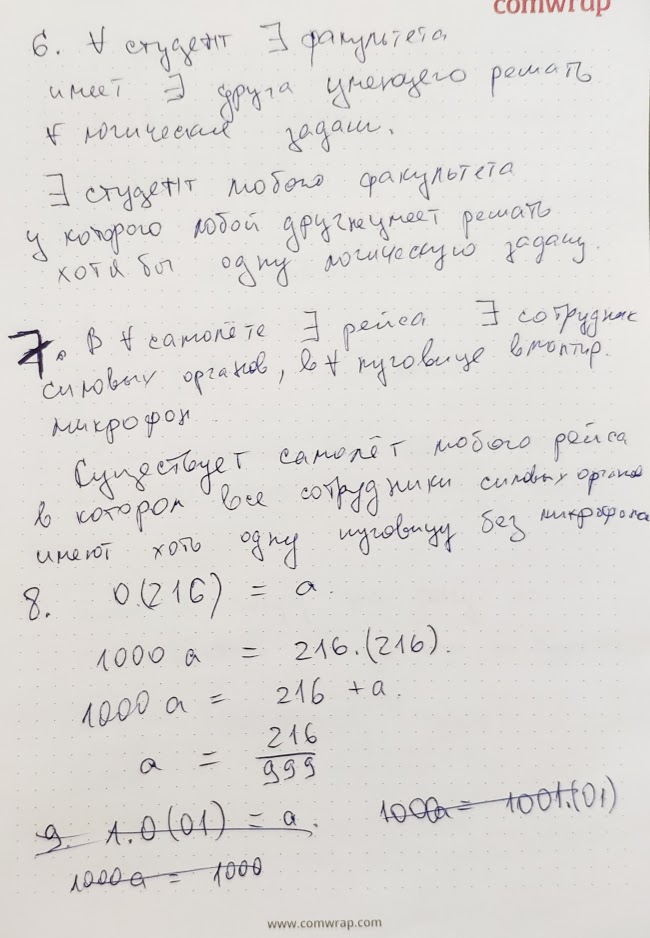 comwrap
6. ∀ студент ∃ факультета
имеет ∃ друга умеющего решать
∀ логические задачи.
∃ студент любого факультета
у которого любой друг не умеет решать
хотя бы одну логическую задачу.
7. В ∀ самолёте ∃ рейса ∃ сотрудник
силовых органов, в ∀ пуговице вмонтир.
микрофон
Существует самолёт любого рейса
в котором все сотрудники силовых органов
имеют хоть одну пуговицу без микрофона
8. 0.(216) = a.
1000 a = 216.(216).
1000 a = 216 + a.
a = 216/999
9. 1.0(01) = a. 1000a = 1001.(01)
1000 a = 1000
www.comwrap.com